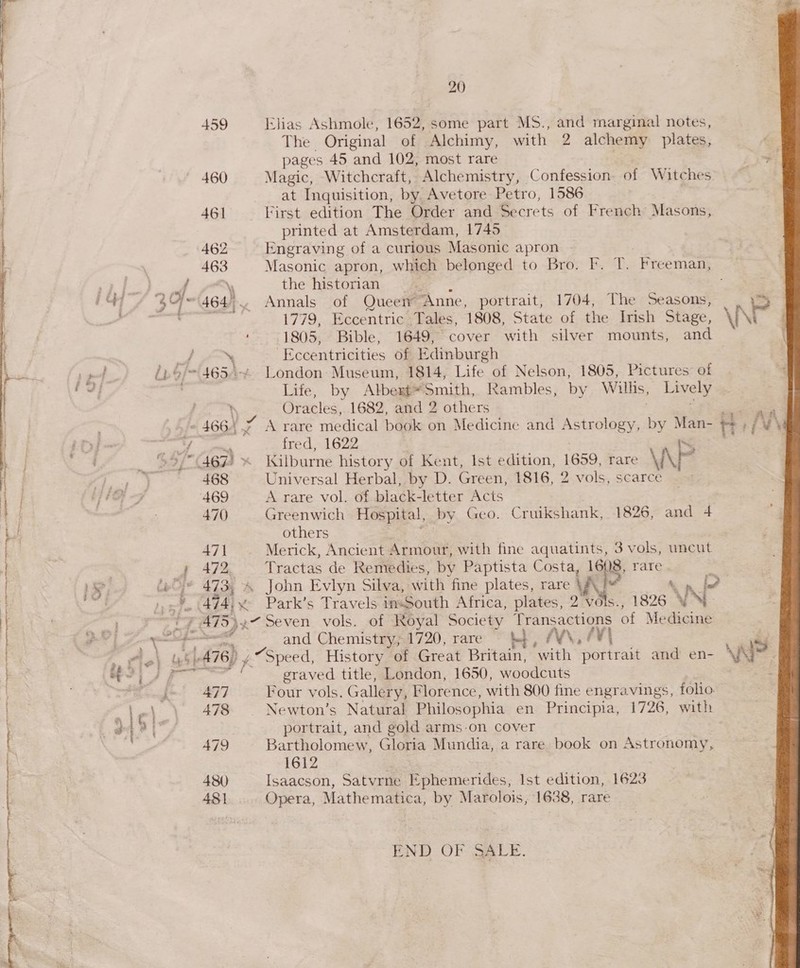 20
459 Elias Ashmole, 1652, some part MS., and marginal notes,
The Original of Alchimy, with 2 alchemy plates,
pages 45 and 102, most rare
460 Magic, Witchcraft, Alchemistry, Confession of Witches
at Inquisition, by Avetore Petro, 1586
461 First edition The Order and Secrets of French Masons,
printed at Amsterdam, 1745
462 Engraving of a curious Masonic apron
463 Masonic apron, which belonged to Bro. F. T. Freeman,
the historian
464 Annals of Queen Anne, portrait, 1704, The Seasons,
1779, Eccentric Tales, 1808, State of the Irish Stage,
1805, Bible, 1649, cover with silver mounts, and
Eccentricities of Edinburgh
465 London Museum, 1814, Life of Nelson, 1805, Pictures of
Life, by Albert Smith, Rambles, by Willis, Lively
Oracles, 1682, and 2 others
466 A rare medical book on Medicine and Astrology, by Man-
fred, 1622
467 Kilburne history of Kent, 1st edition, 1659, rare
468 Universal Herbal, by D. Green, 1816, 2 vols, scarce
469 A rare vol. of black-letter Acts
470 Greenwich Hospital, by Geo. Cruikshank, 1826, and 4
others
471 Merick, Ancient Armour, with fine aquatints, 3 vols, uncut
472 Tractas de Remedies, by Paptista Costa, 1608, rare
473 John Evlyn Silva, with fine plates, rare
474 Park's Travels in South Africa, plates, 2 vols., 1826
475 Seven vols. of Royal Society Transactions of Medicine
and Chemistry, 1720, rare
476 Speed, History of Great Britain, with portrait and en-
graved title, London, 1650, woodcuts
477 Four vols. Gallery, Florence, with 800 fine engravings, folio
478 Newton's Natural Philosophia en Principia, 1726, with
portrait, and gold arms on cover
479 Bartholomew, Gloria Mundia, a rare book on Astronomy,
1612
480 Isaacson, Satvrne Ephemerides, 1st edition, 1623
481 Opera, Mathematica, by Marolois, 1638, rare
END OF SALE.